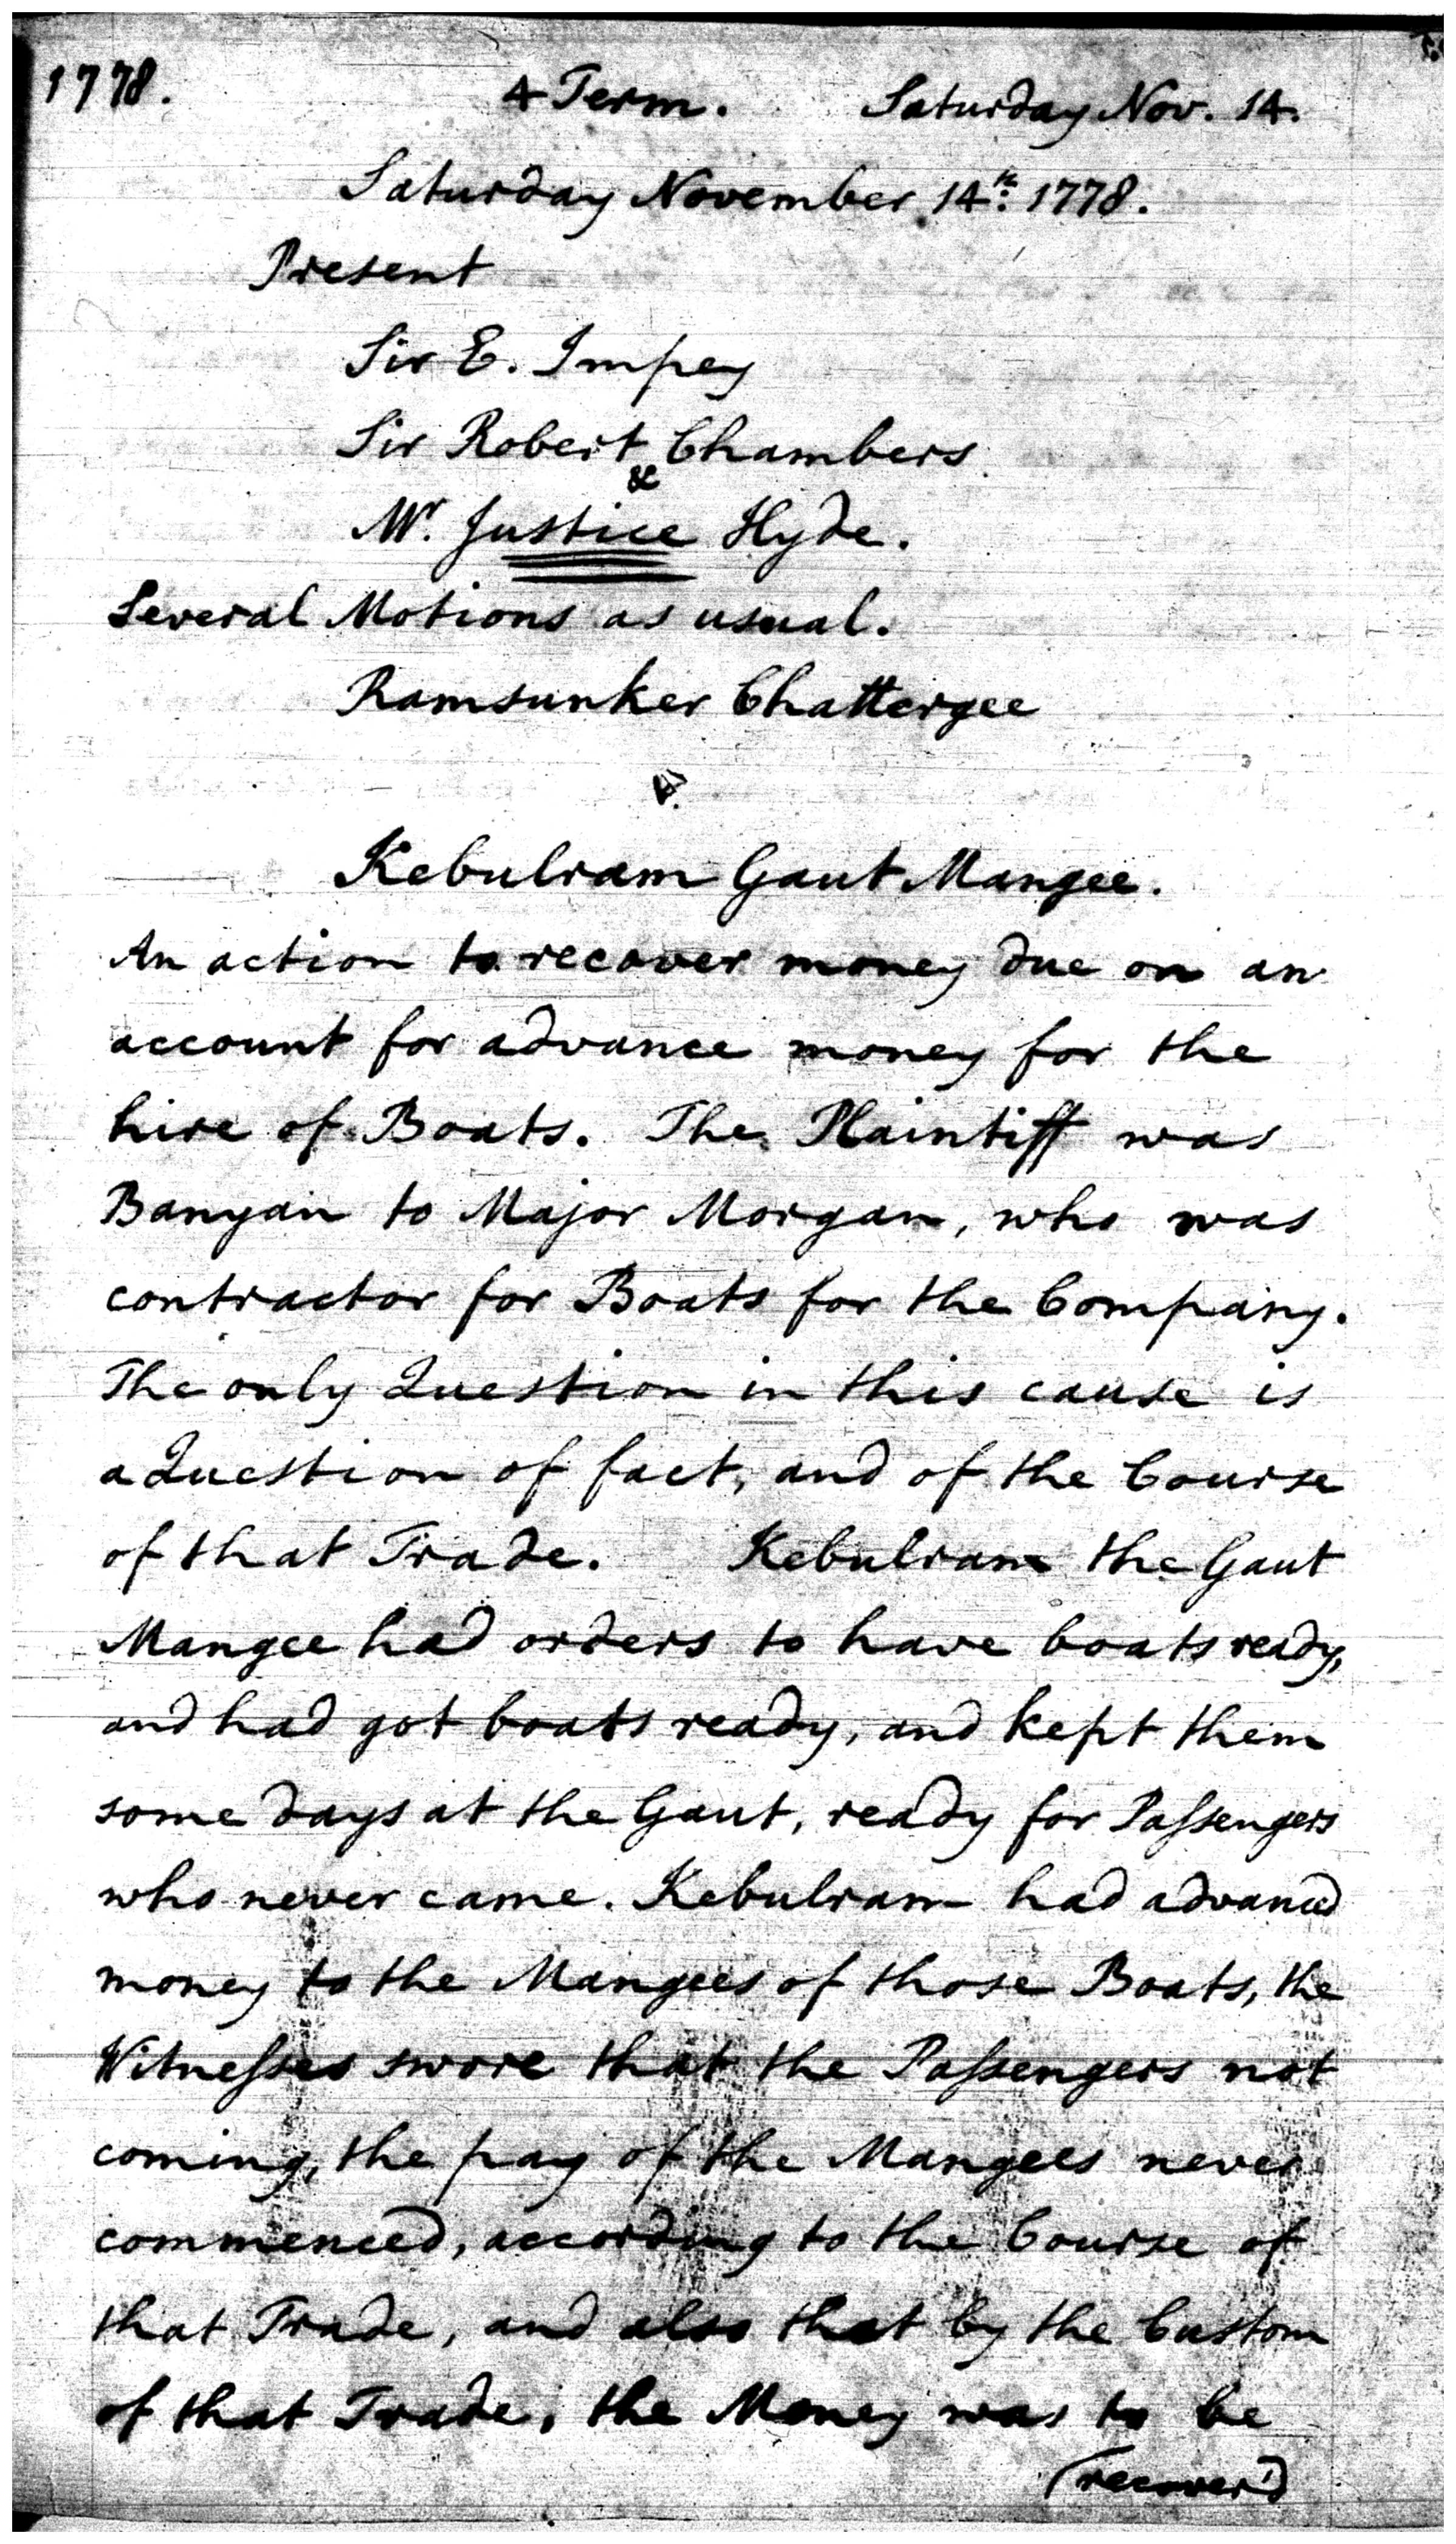 1778. 4 Term. Saturday Nov. 14.
Saturday November 14th. 1778.
Present
Sir E. Impey
Sir Robert Chambers
&
Mr. Justice Hyde.
Several Motions as usual.
Ramsunker Chattergee
V.
Kebulram Gaut Mangee.
An action to recover money due on an
account for advance money for the
hire of Boats. The Plaintiff was
Banyan to Major Morgan, who was
contractor for Boats for the Company.
The only Question in this cause is
a Question of fact, and of the Course
of that Trade. Kebulram the Gaut
Mangee had orders to have boats ready,
and had got boats ready, and kept them
some days at the Gaut, ready for Passengers
who never came. Kebulram had advanced
money to the Mangees of those Boats, the
Witnesses swore that the Passengers not
coming, the pay of the Mangees never
commenced, according to the Course of
that Trade, and also that by the Custom
of that Trade, the Money was to be
(recover'd